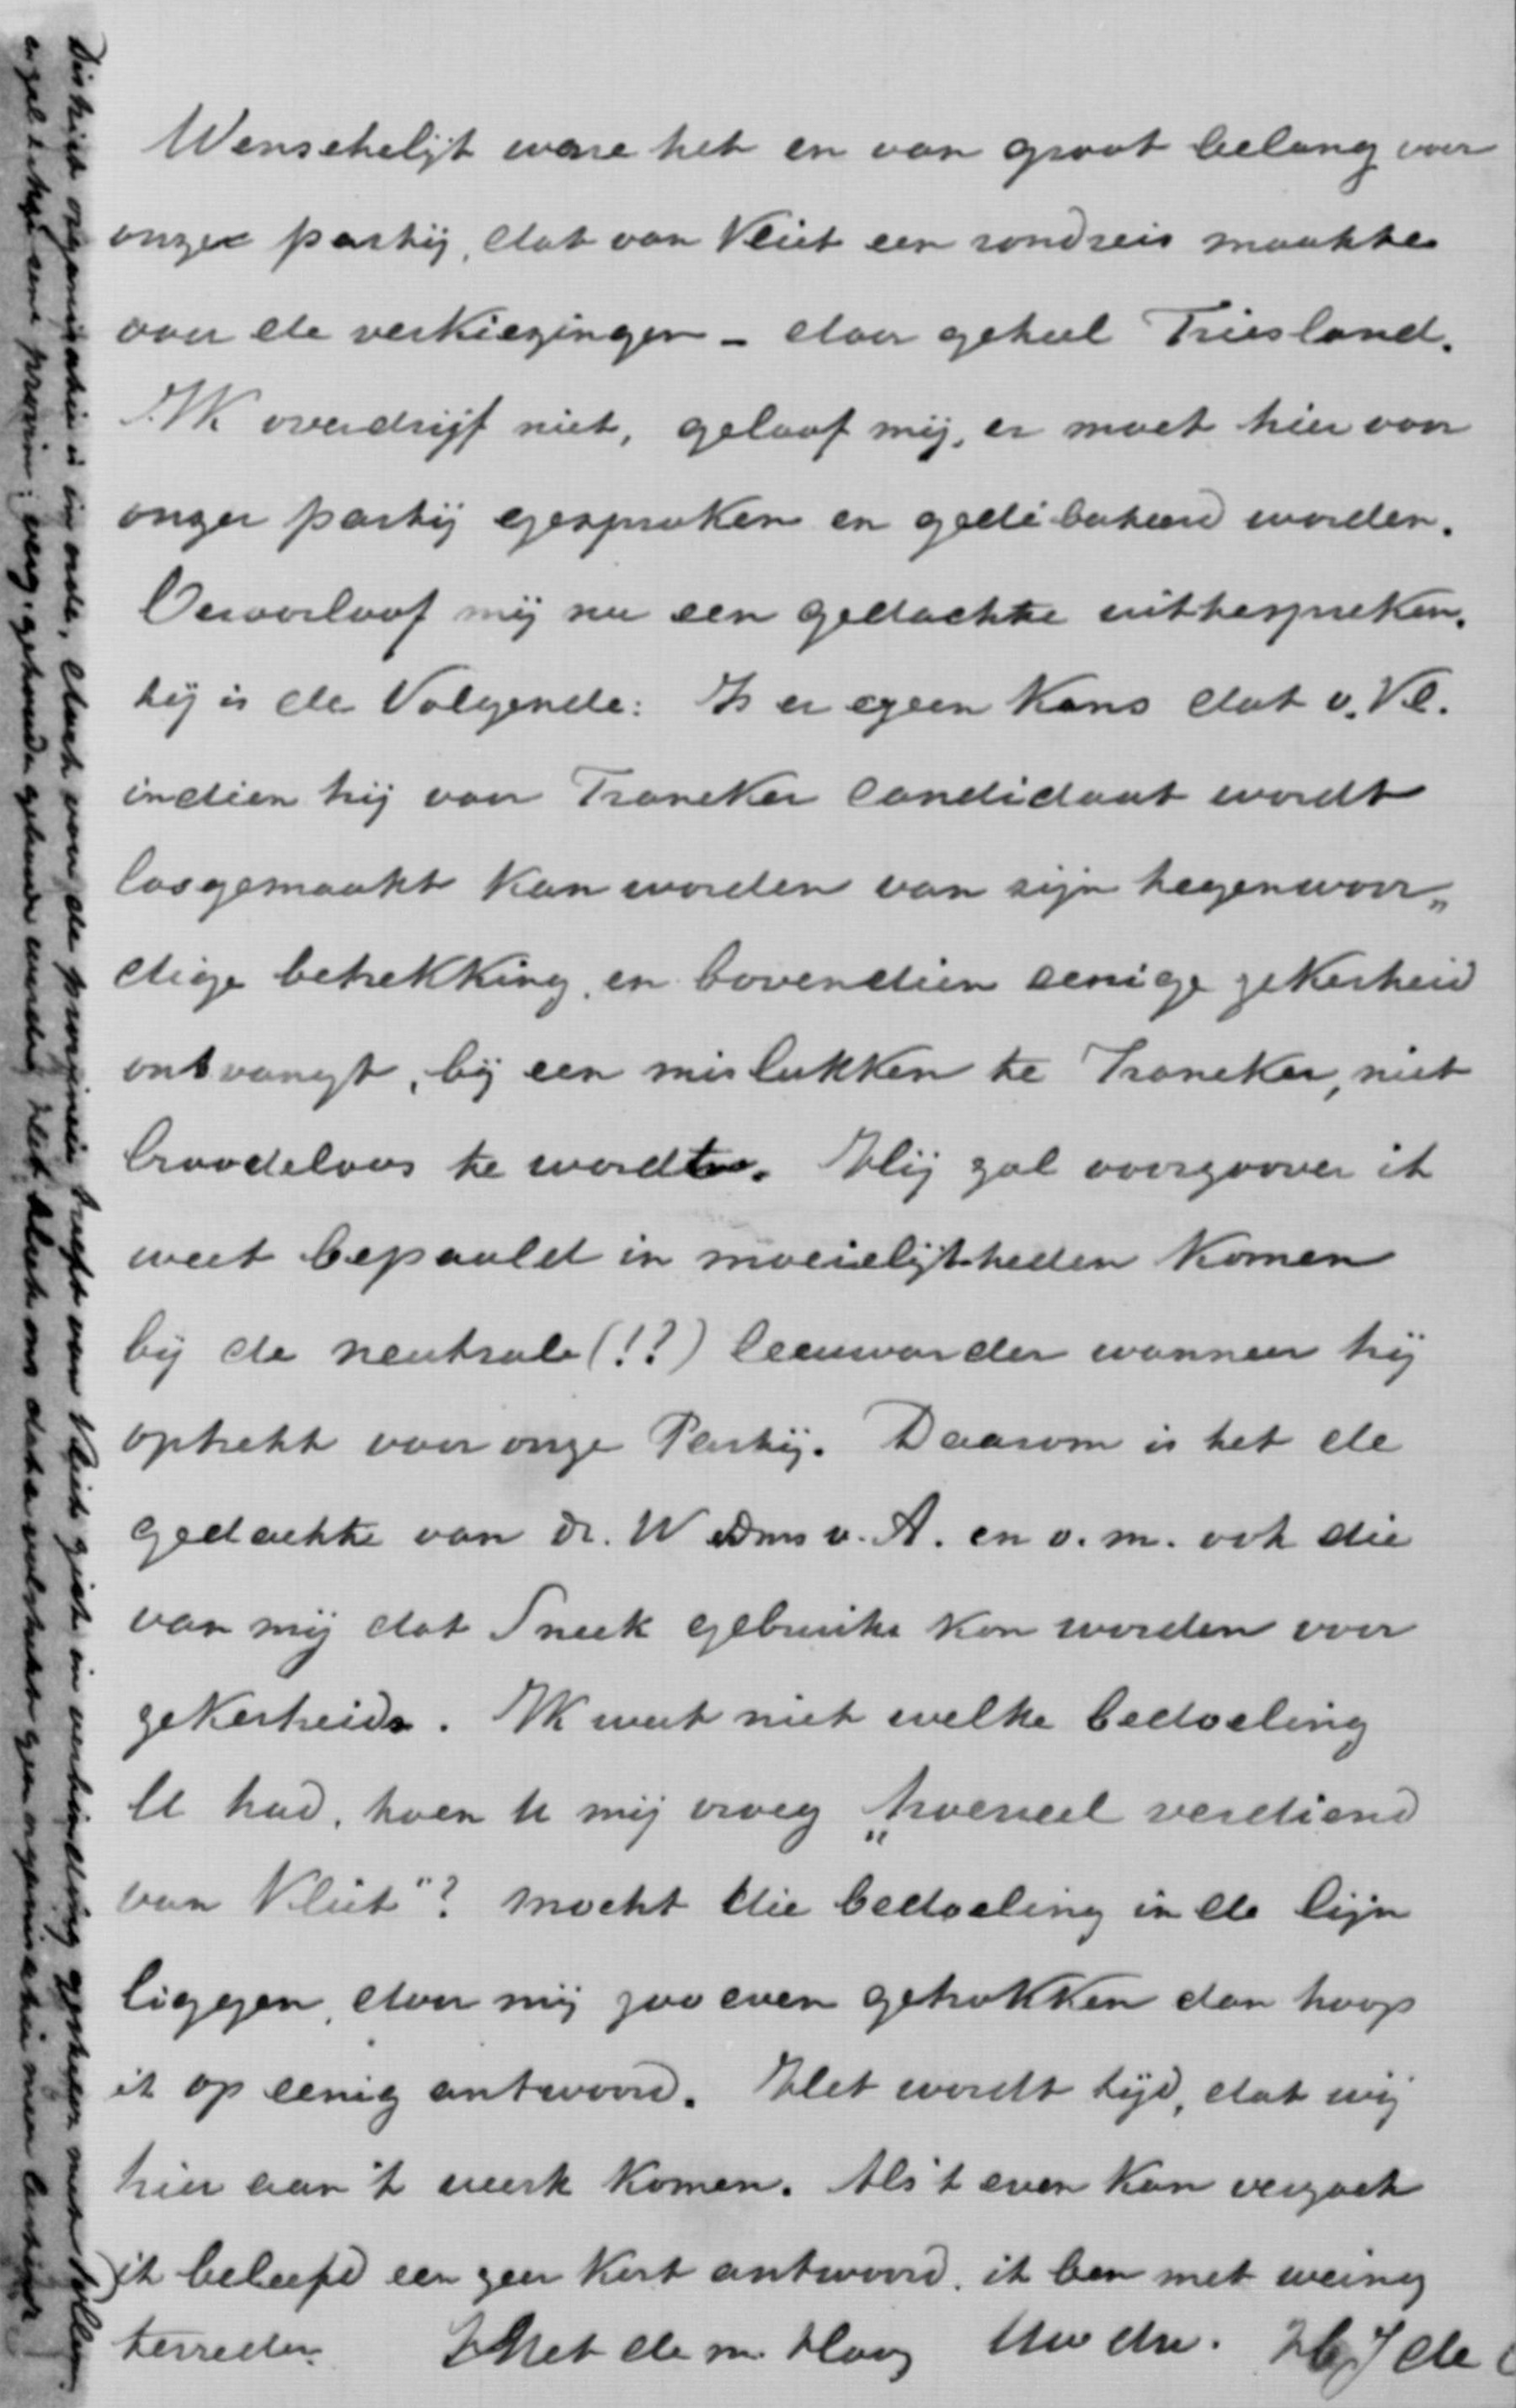 Wenschelijk ware het en van groot belang voor
onze partij, dat van Vliet een rondreis maakte
voor de verkiezingen - door geheel Friesland.
Ik overdrijf niet, geloof mij, er moet hier voor
onze partij gesproken en gedebateerd worden.
Veroorloof mij nu een gedachte uittespreken.
hij is de Volgende: Is er geen Kans dat v. Vl.
indien hij voor Franeker Candidaat wordt
losgemaakt kan worden van zijn tegenwoor„
dige betrekking, en bovendien eenige zekerheid
ontvangt, bij een mislukken te Franeker, niet
broodeloos te worden. Hij zal voorzoover ik
weet bepaald in moeielijkheden komen
bij de neutrale (!?) Leeuwarder wanneer hij
optrekt voor onze Partij. Daarom is het de
gedachte van Dr. W v. A. en v. m. ook die
van mij dat Sneek gebruikt kon worden voor
zekerheid. Ik weet niet welke bedoeling
U had, toen U mij vroeg „hoeveel verdiend
van Vliet"? mocht die bedoeling in de lijn
liggen, door mij zoo even getrokken dan hoop
ik op eenig antwoord. Het wordt tijd, dat wij
hier aan 't werk komen. Als 't even kan verzoek
ik beleefd een zeer kort antwoord, ik ben met weinig
tevreden. Met de m. Hoog Uw dw. de
District organisatie is in orde, doch voor de provincie van Vliet in verbinding
en zal prov: verg. gehouden worden. Het